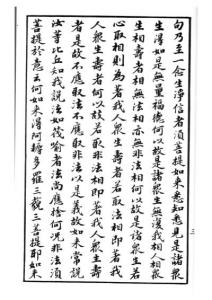 句乃至一念生淨信者須菩提如來悉知悉見是諸衆
生得如是無量福德何以故是諸衆生無復我相人相衆
生相壽者相無法相亦無非法相何以故是諸衆生若
心取相則為著我人衆生壽者若取法相即著我
人衆生壽者何以故若取非法相即著我人衆生壽
者是故不應取法不應取非法以是義故如來常說
汝等比丘知我說法如筏喻者法尚應捨何況非法須
菩提於意云何如來得阿耨多羅三藐三菩提耶如來
三